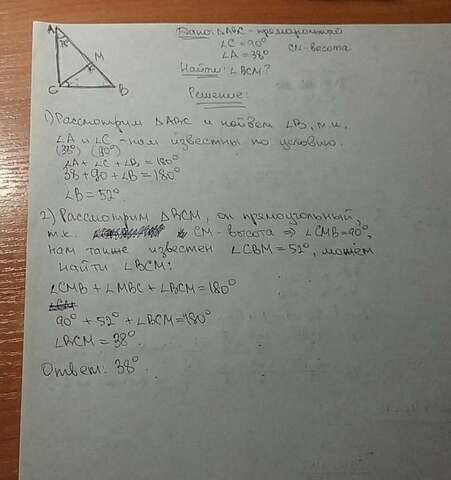 Дано: △ABC - прямоугольный
∠C = 90°
∠A = 38°
CM - высота
Найти: ∠BCM?
Решение:
A
K
M
C
B
1) Рассмотрим △ABC и найдем ∠B, т.к.
∠A и ∠C - нам известны по условию.
(38°) (90°)
∠A + ∠C + ∠B = 180°
38 + 90 + ∠B = 180°
∠B = 52°.
2) Рассмотрим △BCM, он прямоугольный,
т.к. CM - высота ⇒ ∠CMB = 90°,
нам также известен ∠CBM = 52°, можем
найти ∠BCM:
∠CMB + ∠MBC + ∠BCM = 180°
90° + 52° + ∠BCM = 180°
∠BCM = 38°.
Ответ: 38°